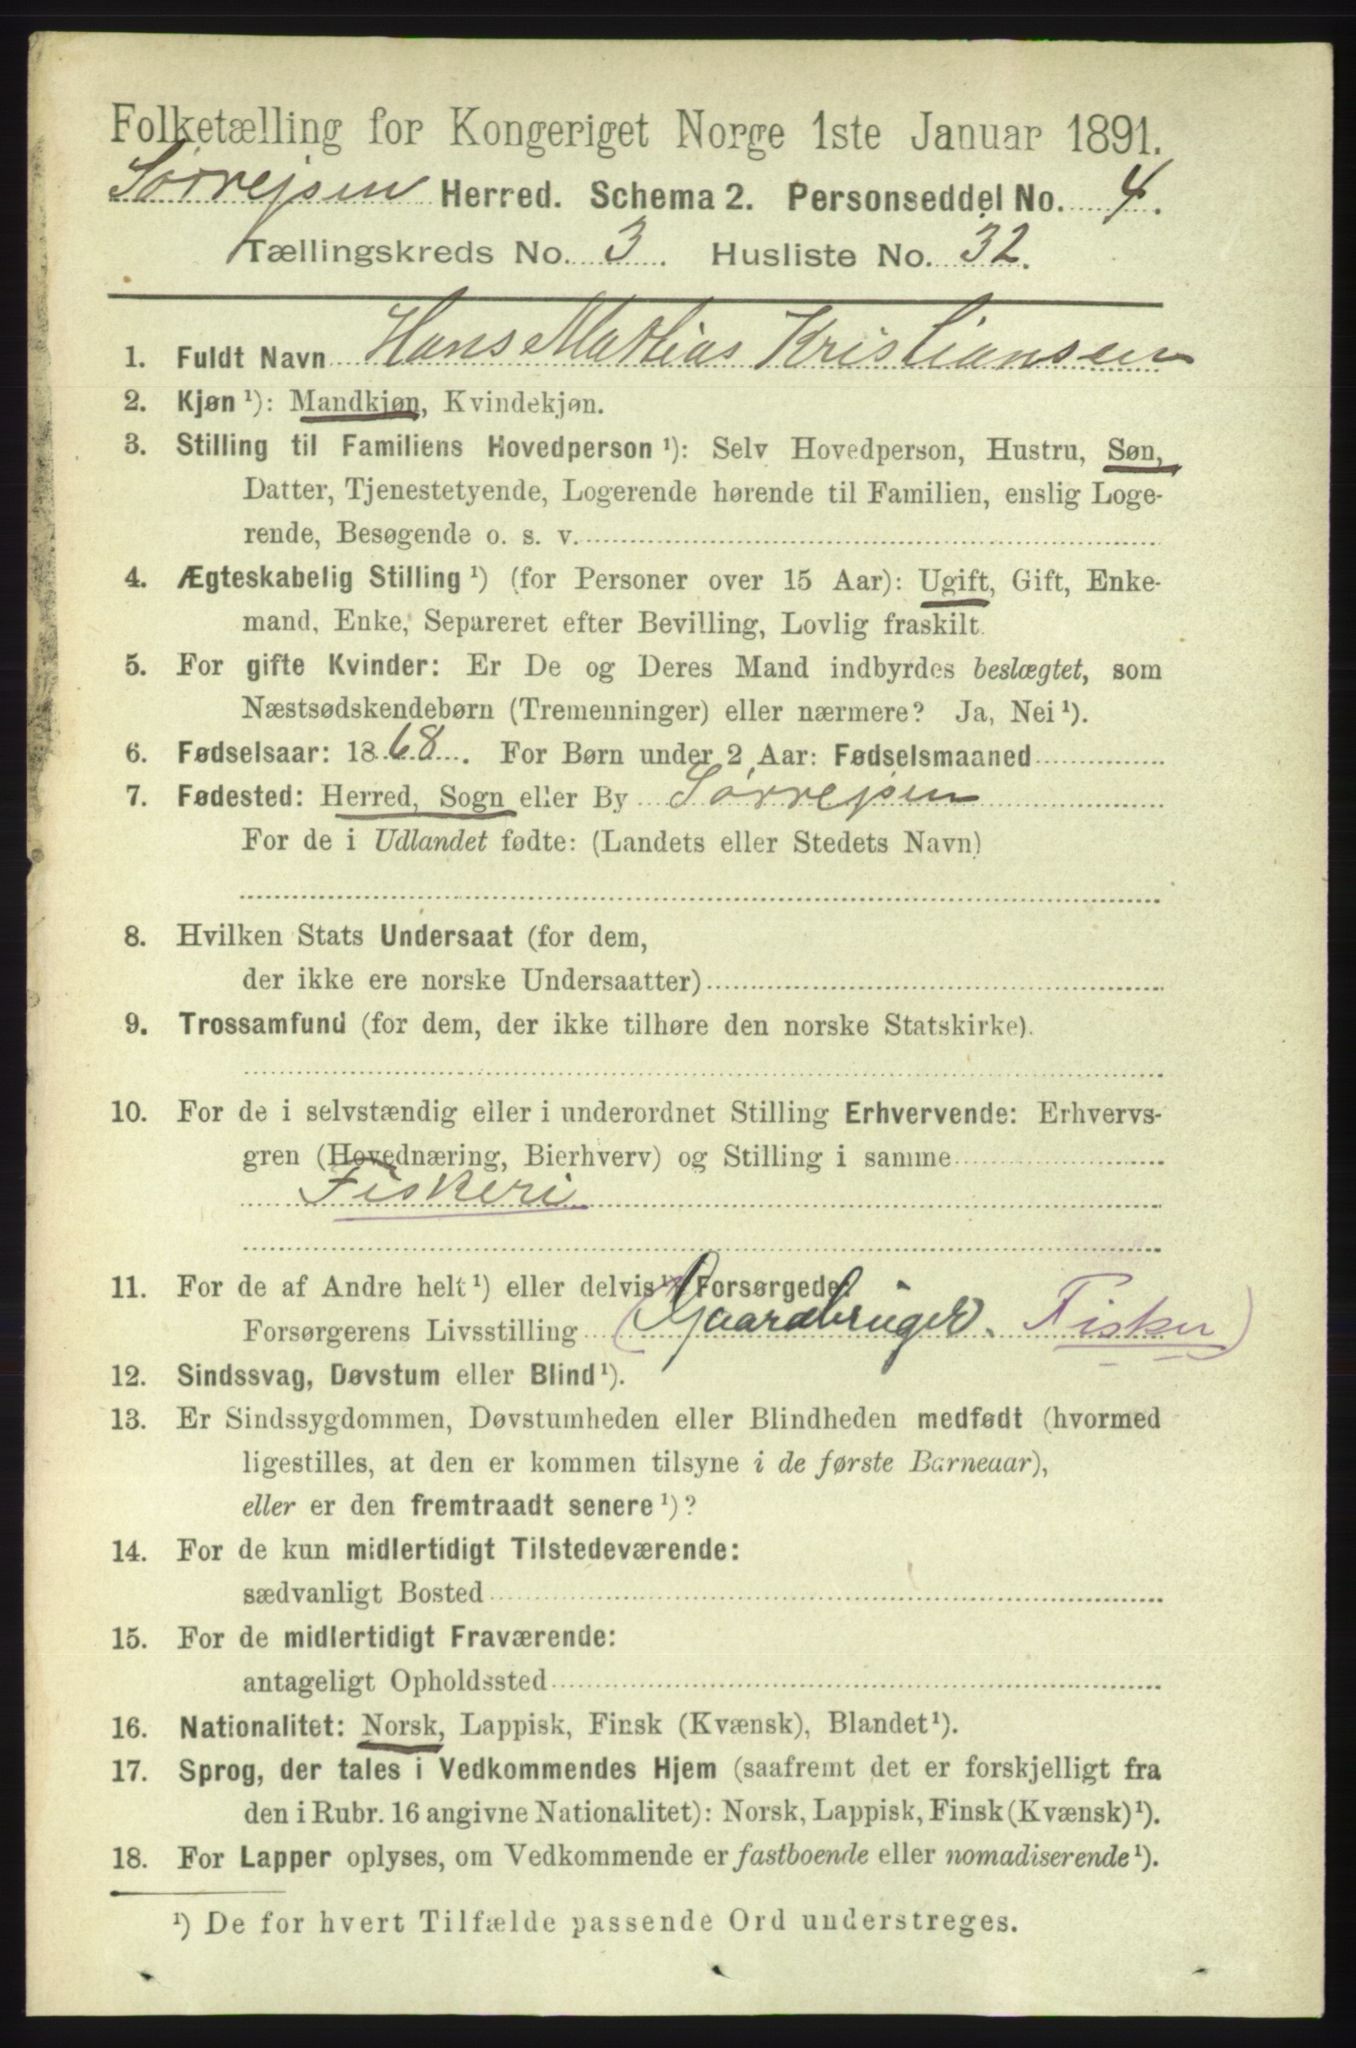 Folketælling for Kongeriget Norge 1ste Januar 1891.
Sørrejsen Herred. Schema 2. Personseddel No. 4.
Tællingskreds No. 3. Husliste No. 32.
1. Fuldt Navn Hans Mathias Kristiansen
2. Kjøn ¹): Mandkjøn, Kvindekjøn.
3. Stilling til Familiens Hovedperson ¹): Selv Hovedperson, Hustru, Søn,
Datter, Tjenestetyende, Logerende hørende til Familien, enslig Loge-
rende, Besøgende o. s. v.
4. Ægteskabelig Stilling ¹) (for Personer over 15 Aar): Ugift, Gift, Enke-
mand, Enke, Separeret efter Bevilling, Lovlig fraskilt.
5. For gifte Kvinder: Er De og Deres Mand indbyrdes beslægtet, som
Næstsødskendebørn (Tremenninger) eller nærmere? Ja, Nei ¹).
6. Fødselsaar: 1868. For Børn under 2 Aar: Fødselsmaaned
7. Fødested: Herred, Sogn eller By Sørrejsen
For de i Udlandet fødte: (Landets eller Stedets Navn)
8. Hvilken Stats Undersaat (for dem,
der ikke ere norske Undersaatter)
9. Trossamfund (for dem, der ikke tilhøre den norske Statskirke).
10. For de i selvstændig eller i underordnet Stilling Erhvervende: Erhvervs-
gren (Hovednæring, Bierhverv) og Stilling i samme
Fiskeri
11. For de af Andre helt ¹) eller delvis ¹) Forsørgede:
Forsørgerens Livsstilling (Gaardbruger. Fisker)
12. Sindssvag, Døvstum eller Blind ¹).
13. Er Sindssygdommen, Døvstumheden eller Blindheden medfødt (hvormed
ligestilles, at den er kommen tilsyne i de første Barneaar),
eller er den fremtraadt senere ¹)?
14. For de kun midlertidigt Tilstedeværende:
sædvanligt Bosted
15. For de midlertidigt Fraværende:
antageligt Opholdssted
16. Nationalitet: Norsk, Lappisk, Finsk (Kvænsk), Blandet ¹).
17. Sprog, der tales i Vedkommendes Hjem (saafremt det er forskjelligt fra
den i Rubr. 16 angivne Nationalitet): Norsk, Lappisk, Finsk (Kvænsk) ¹).
18. For Lapper oplyses, om Vedkommende er fastboende eller nomadiserende ¹).
¹) De for hvert Tilfælde passende Ord understreges.